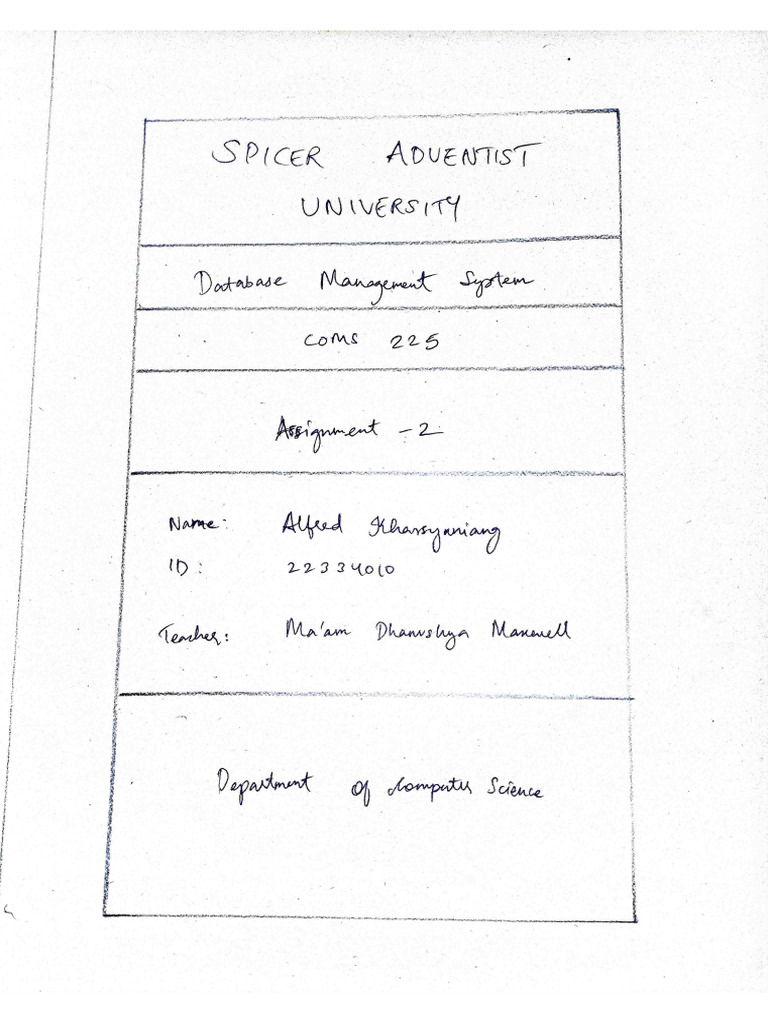 SPICER ADVENTIST
UNIVERSITY
Database Management System
COMS 225
Assignment - 2
Name: Alfred Kharsynniang
ID: 22334010
Teacher: Ma'am Dhanushya Maxwell
Department of Computer Science